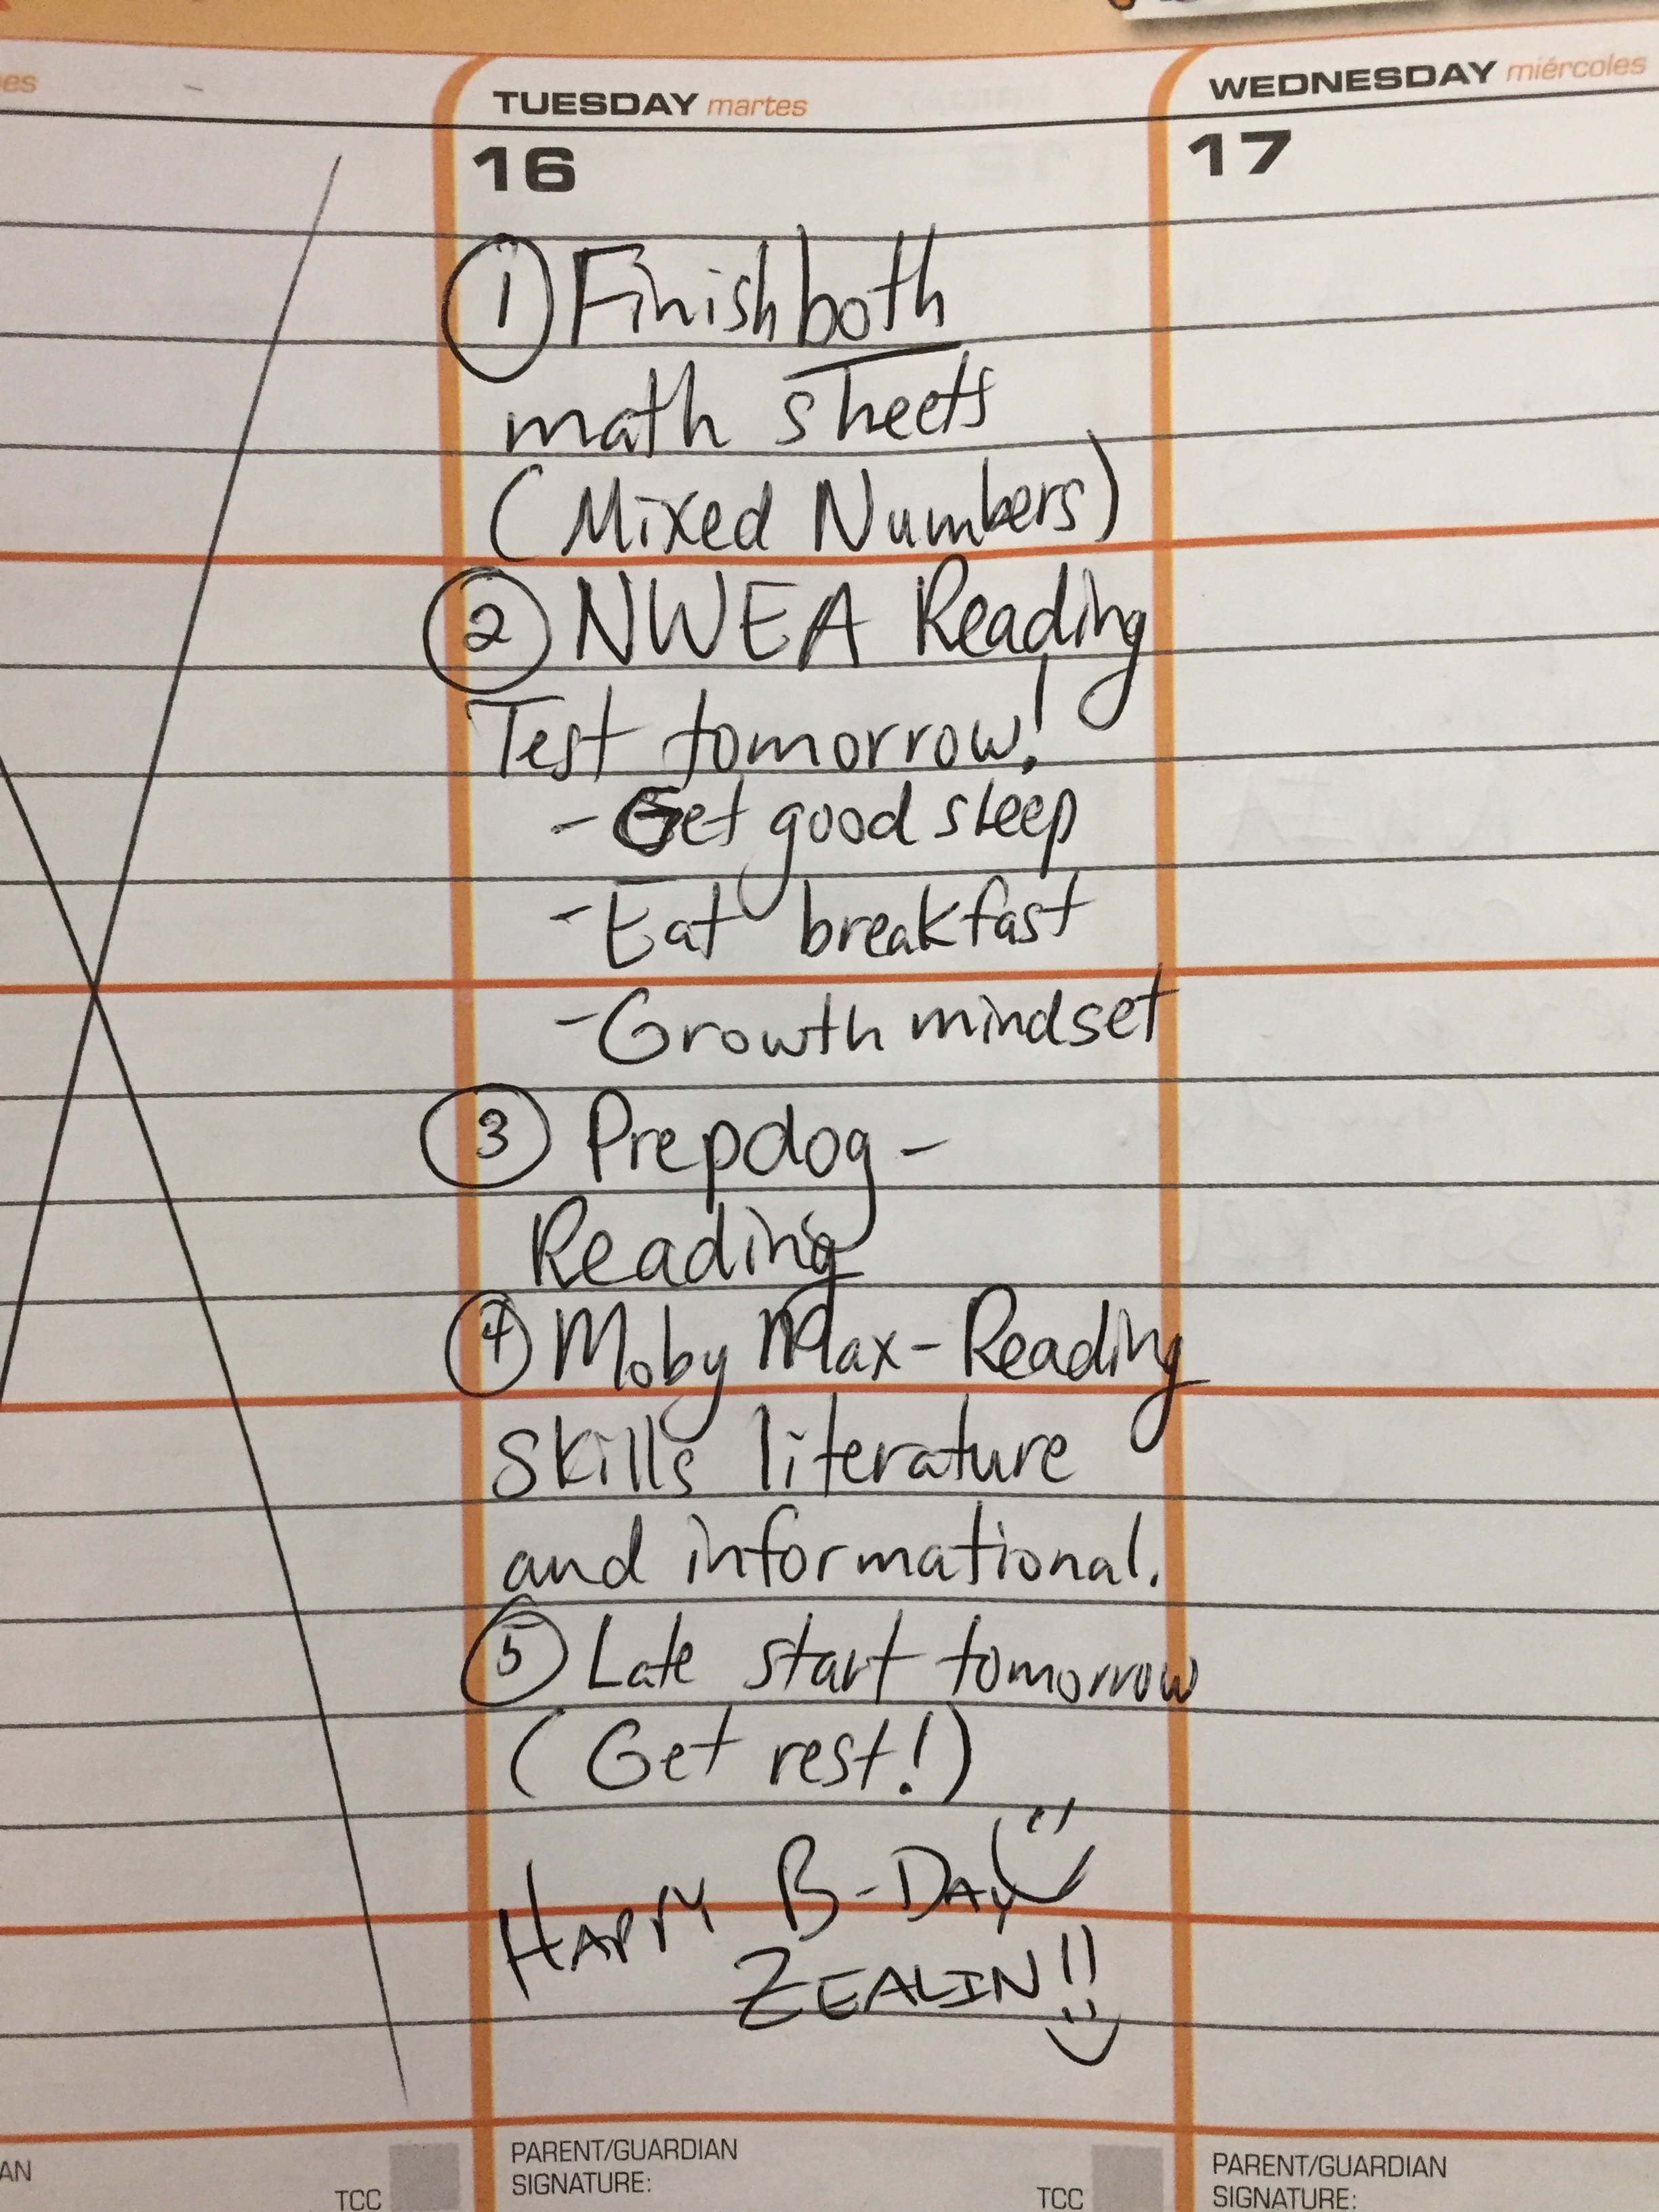 es
TUESDAY martes
16
① Finish both
math sheets
(Mixed Numbers)
② NWEA Reading
Test tomorrow!
- Get good sleep
- Eat breakfast
- Growth mindset
③ Prepdog -
Reading
④ Moby Max - Reading
skills literature
and informational.
⑤ Late start tomorrow
(Get rest!)
HAPPY B-DAY
ZEALIN!!
AN
TCC
PARENT/GUARDIAN
SIGNATURE:
TCC
WEDNESDAY miércoles
17
PARENT/GUARDIAN
SIGNATURE: